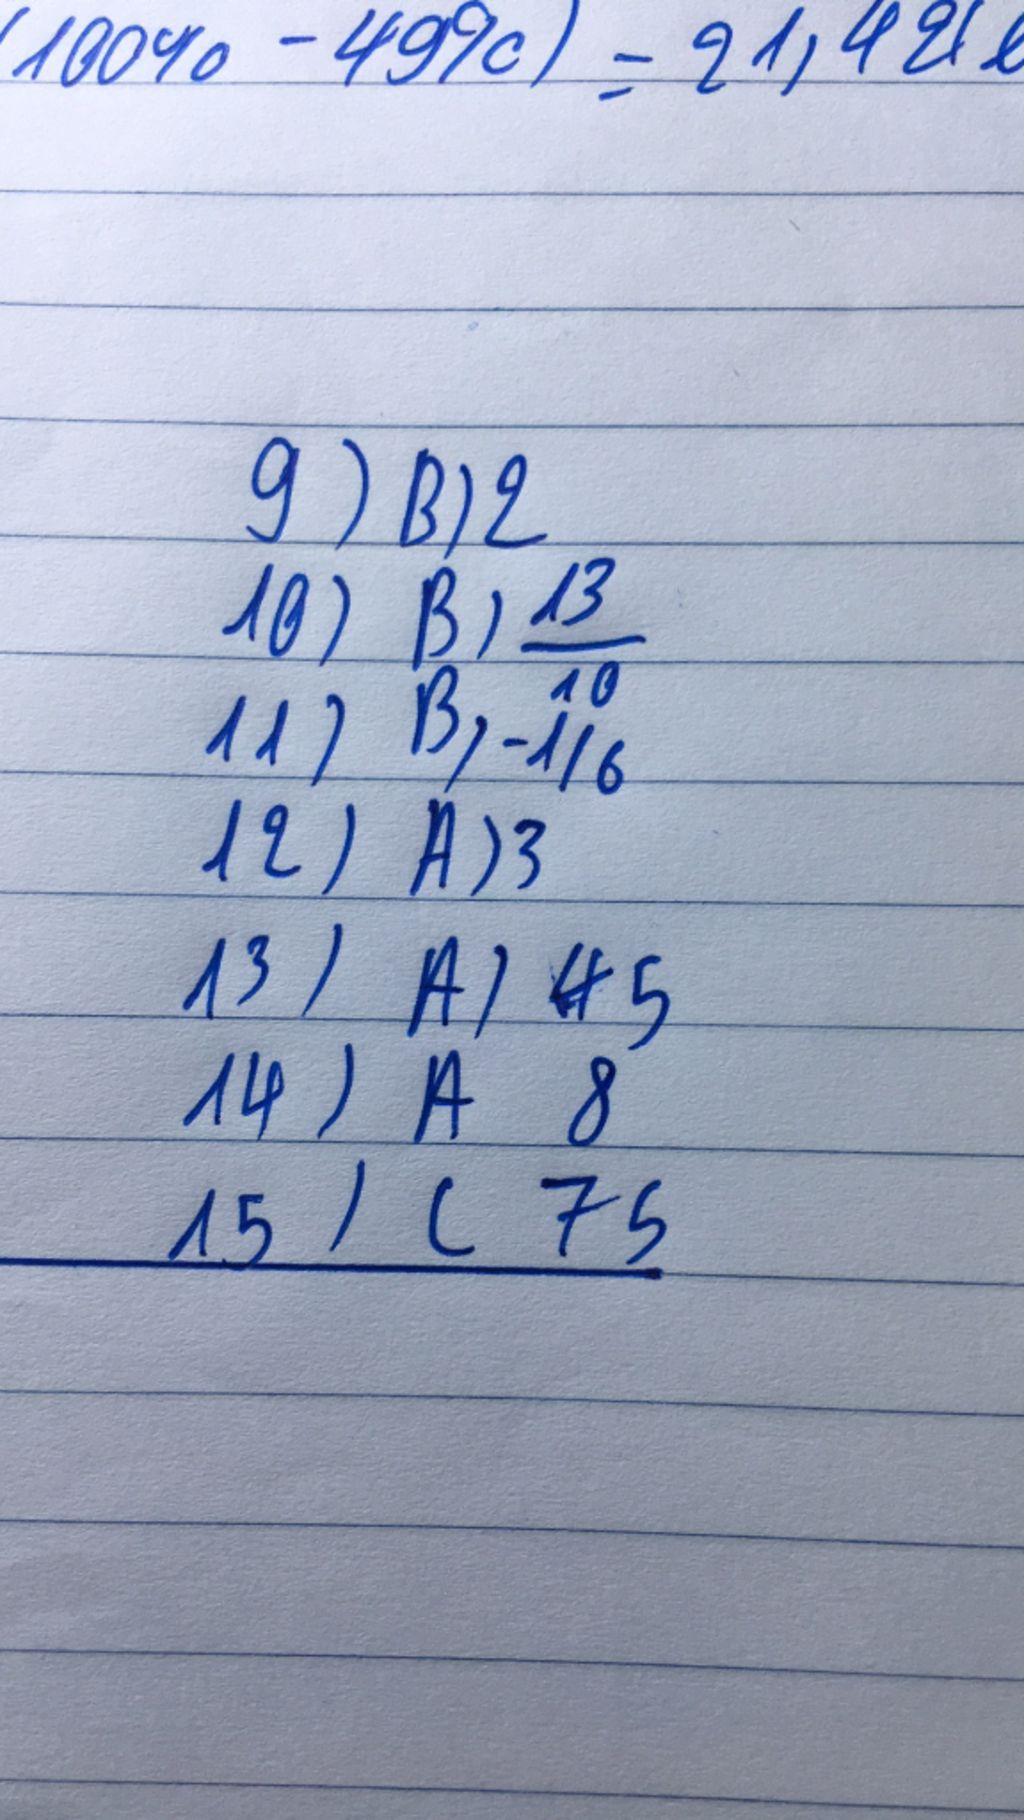 (100% - 49%) = 21,42(l
9) B) 2
10) B, 13/10
11) B, -1/6
12) A) 3
13) A) 45
14) A 8
15) C 75